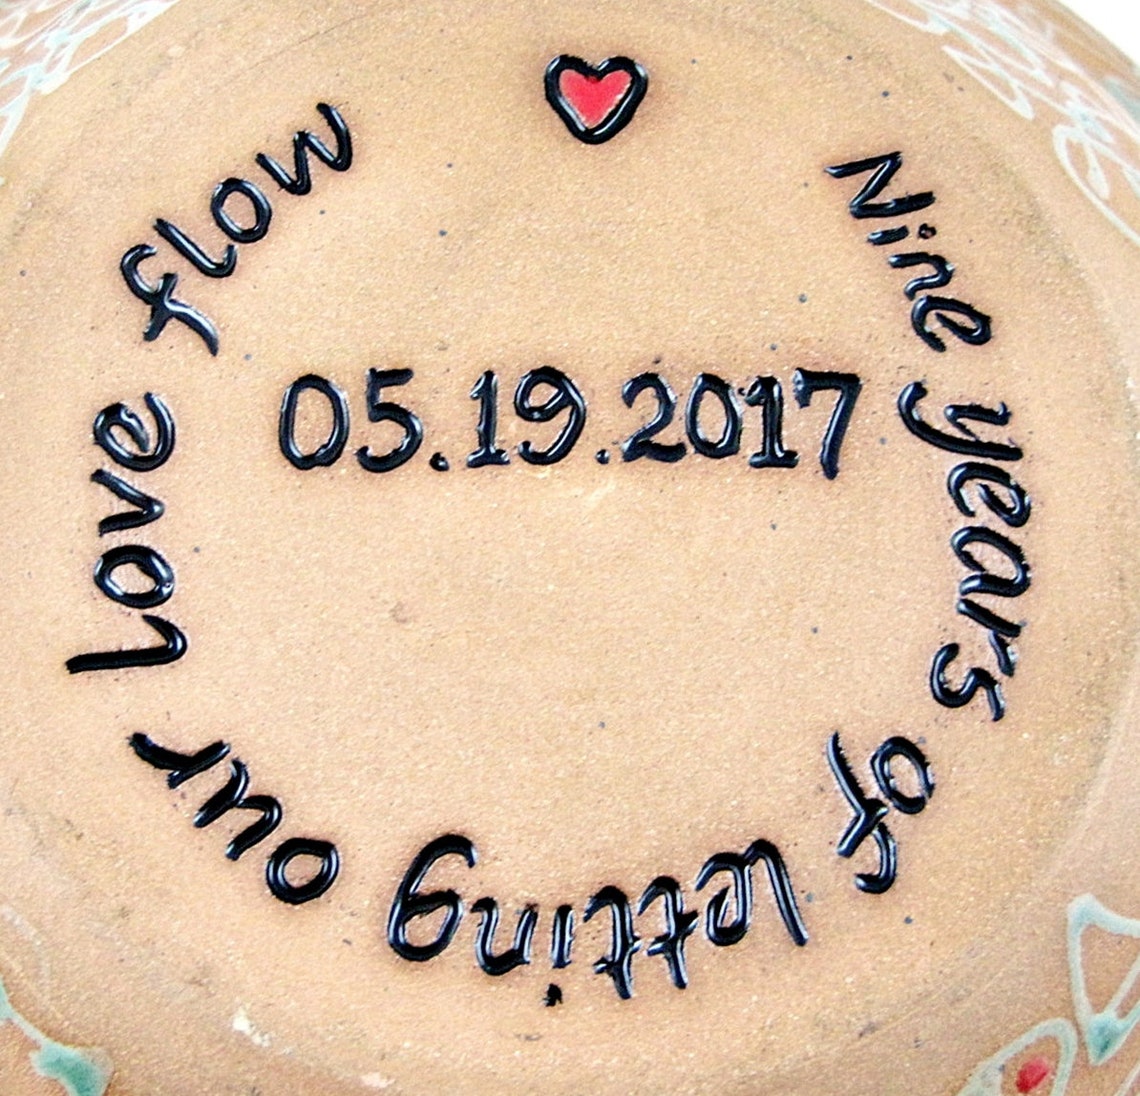 Nine years of letting our Love flow
05.19.2017